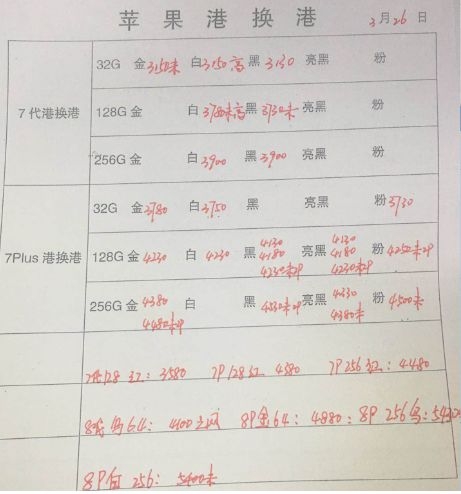 苹果港换港 3月26日
7代港换港
32G 金3150未 白3150高 黑3130 亮黑 粉
128G 金 白3750未高 黑3730未 亮黑 粉
256G 金 白3900 黑3900 亮黑 粉
7Plus港换港
32G 金3780 白3750 黑 亮黑 粉3730
128G 金4230 白4230 黑4130 4180 4230未中 亮黑4130 4180 4230未中 粉4250未中
256G 金4380 4480未中 白 黑4530未中 亮黑4330 4380未 粉4500未
7代128红:3580 7P128红 4380 7P256红:4480
8代 64:4100 8P金64:4880: 8P 256
8P白 256:5400未